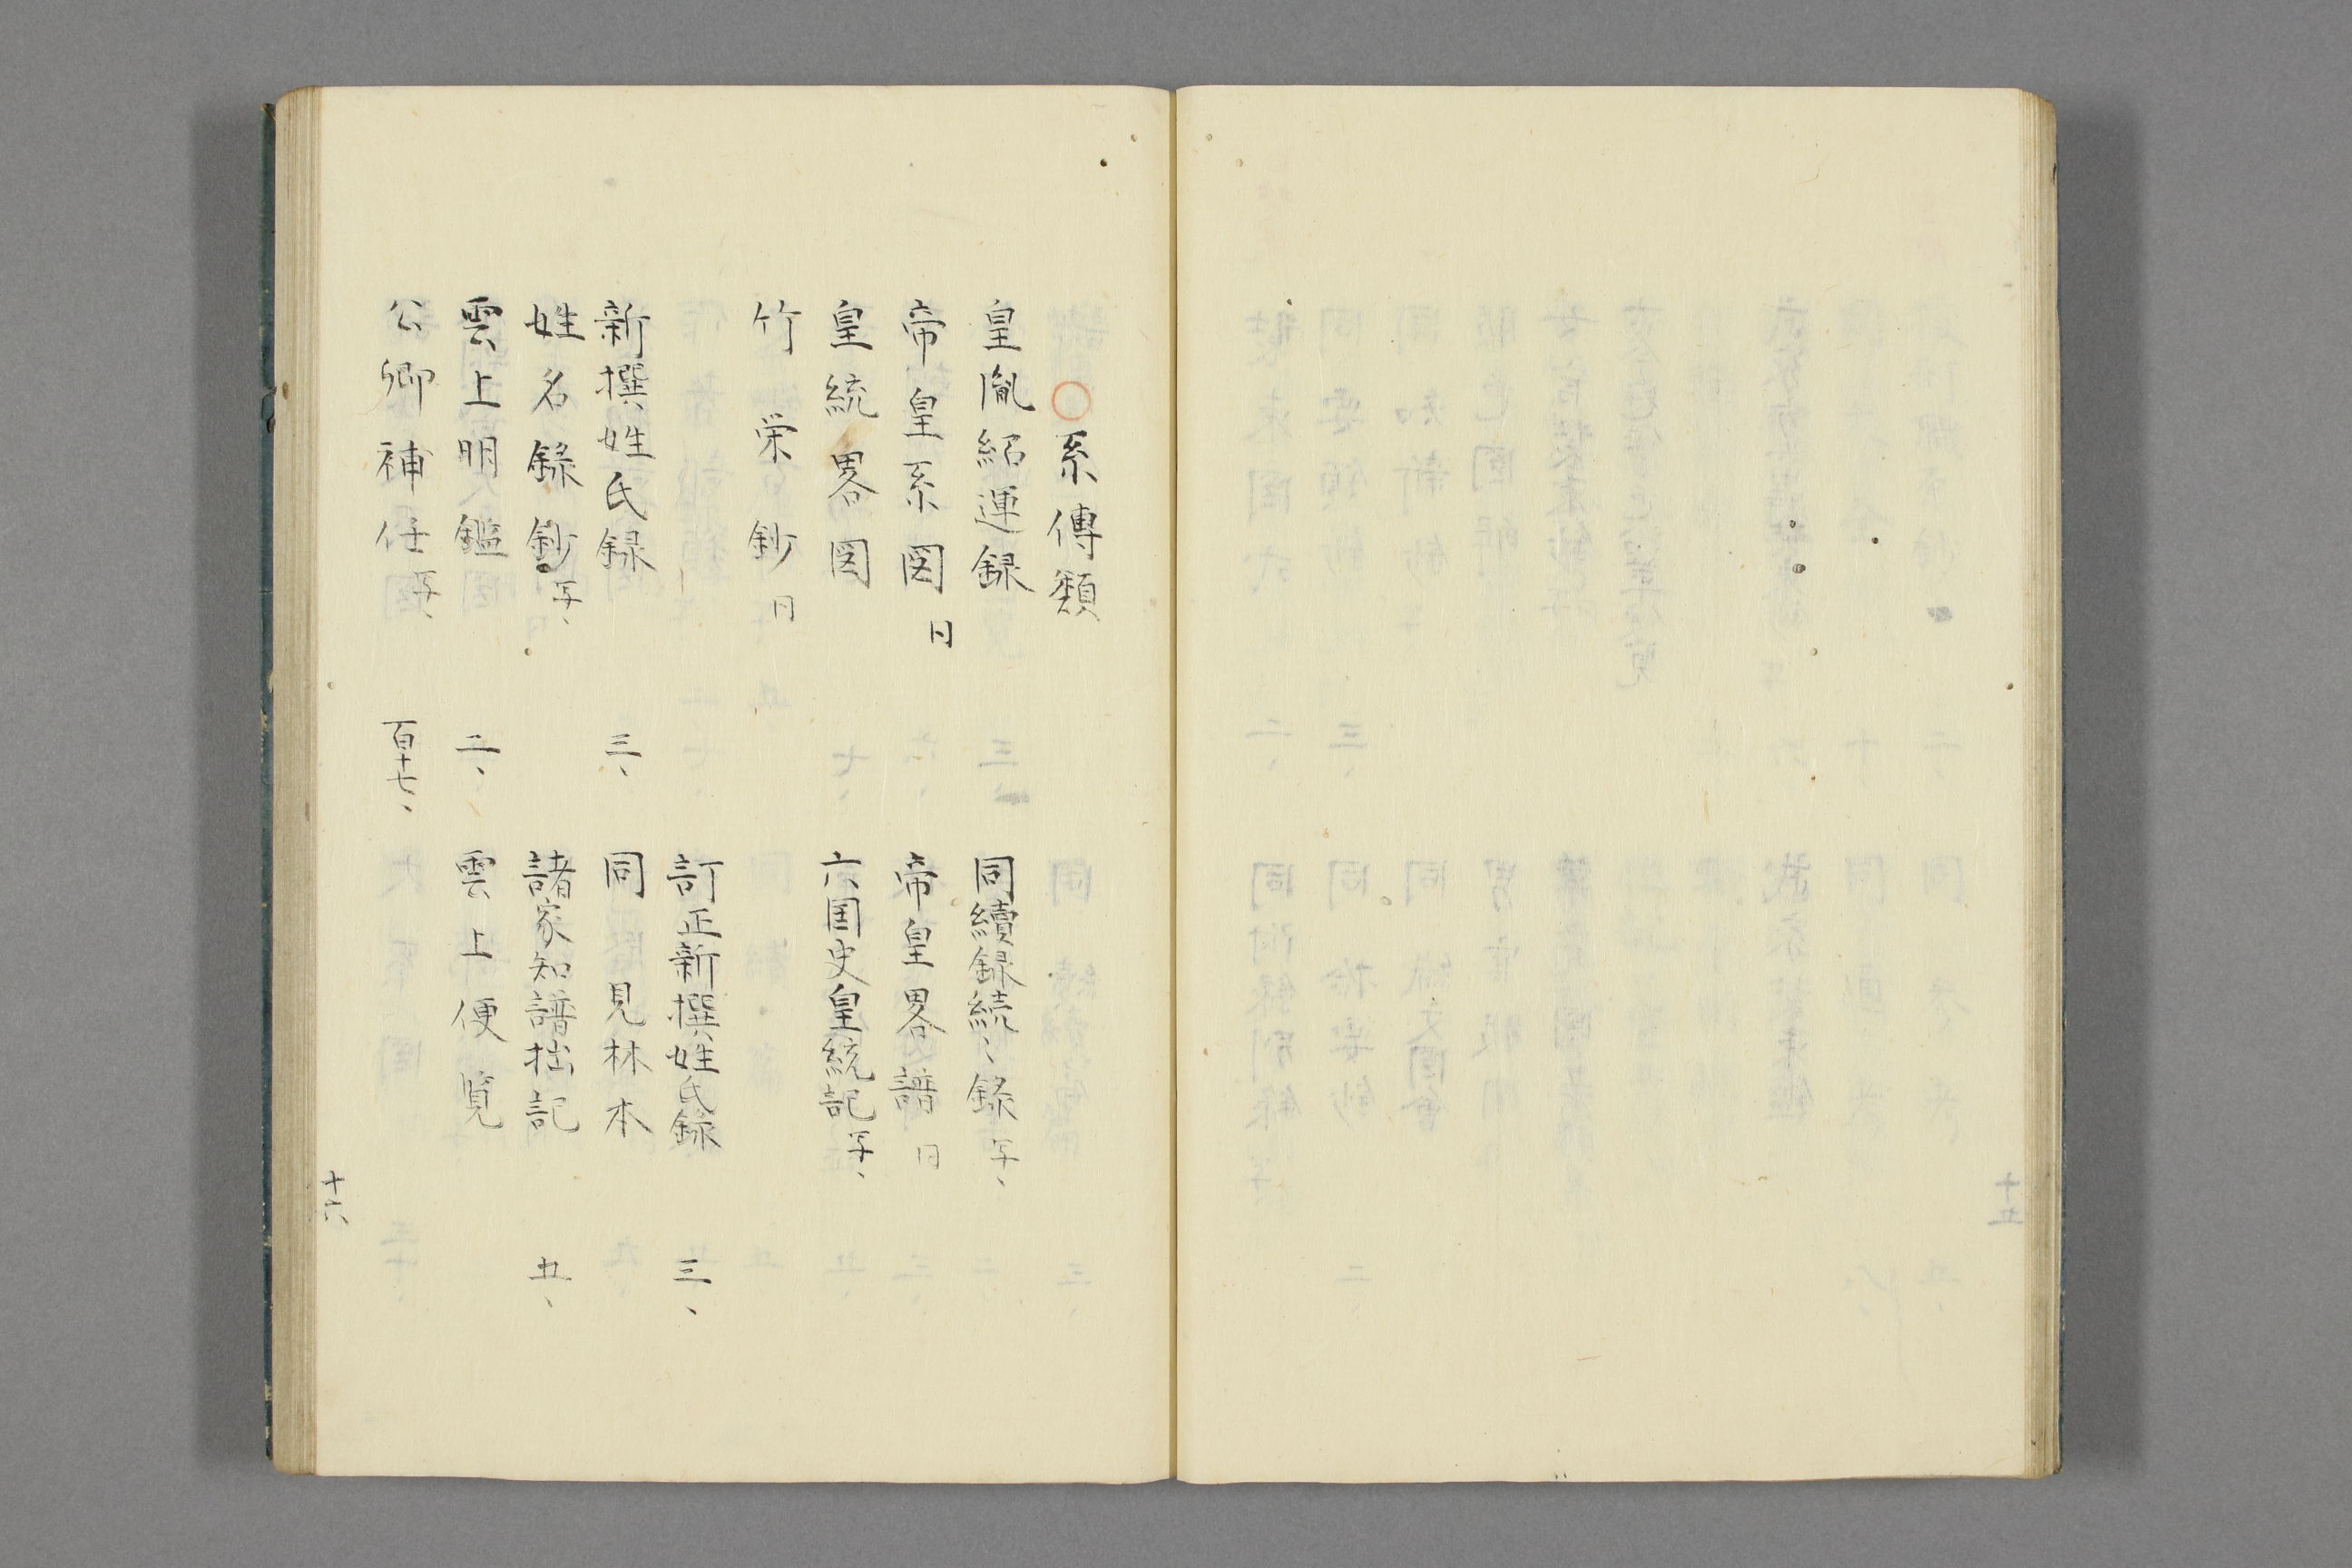 ○系傳類
皇胤紹運録
同續録続〻錄 写、
帝皇系図 日
帝皇畧譜 日
皇統畧図
六国史皇統記 写、
竹栄鈔 日
訂正新撰姓氏録 三、
新撰姓氏録 三、
同 見林本
姓名錄鈔 写、
諸家知譜拙記 五、
雲上明鑑 二、
雲上便覧
公卿補任 写、 百十七、
十六